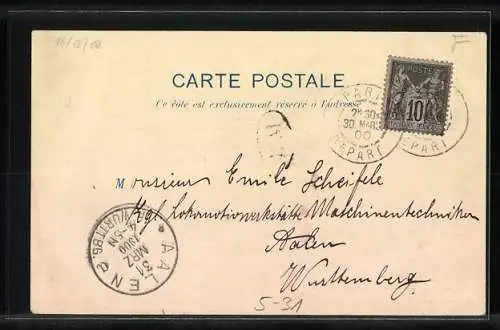 CARTE POSTALE
Ce côté est exclusivement réservé à l'adresse
POSTES
10
PARIS
2E 30
30 MARS
00
DEPART
EPART
Monsieur Emile Scheifele
Kgl Lokomotivwerkstätte Maschinentechniker
Aalen
Württemberg
AALEN
31
MRZ
1900
WÜRTTBG.
5-31